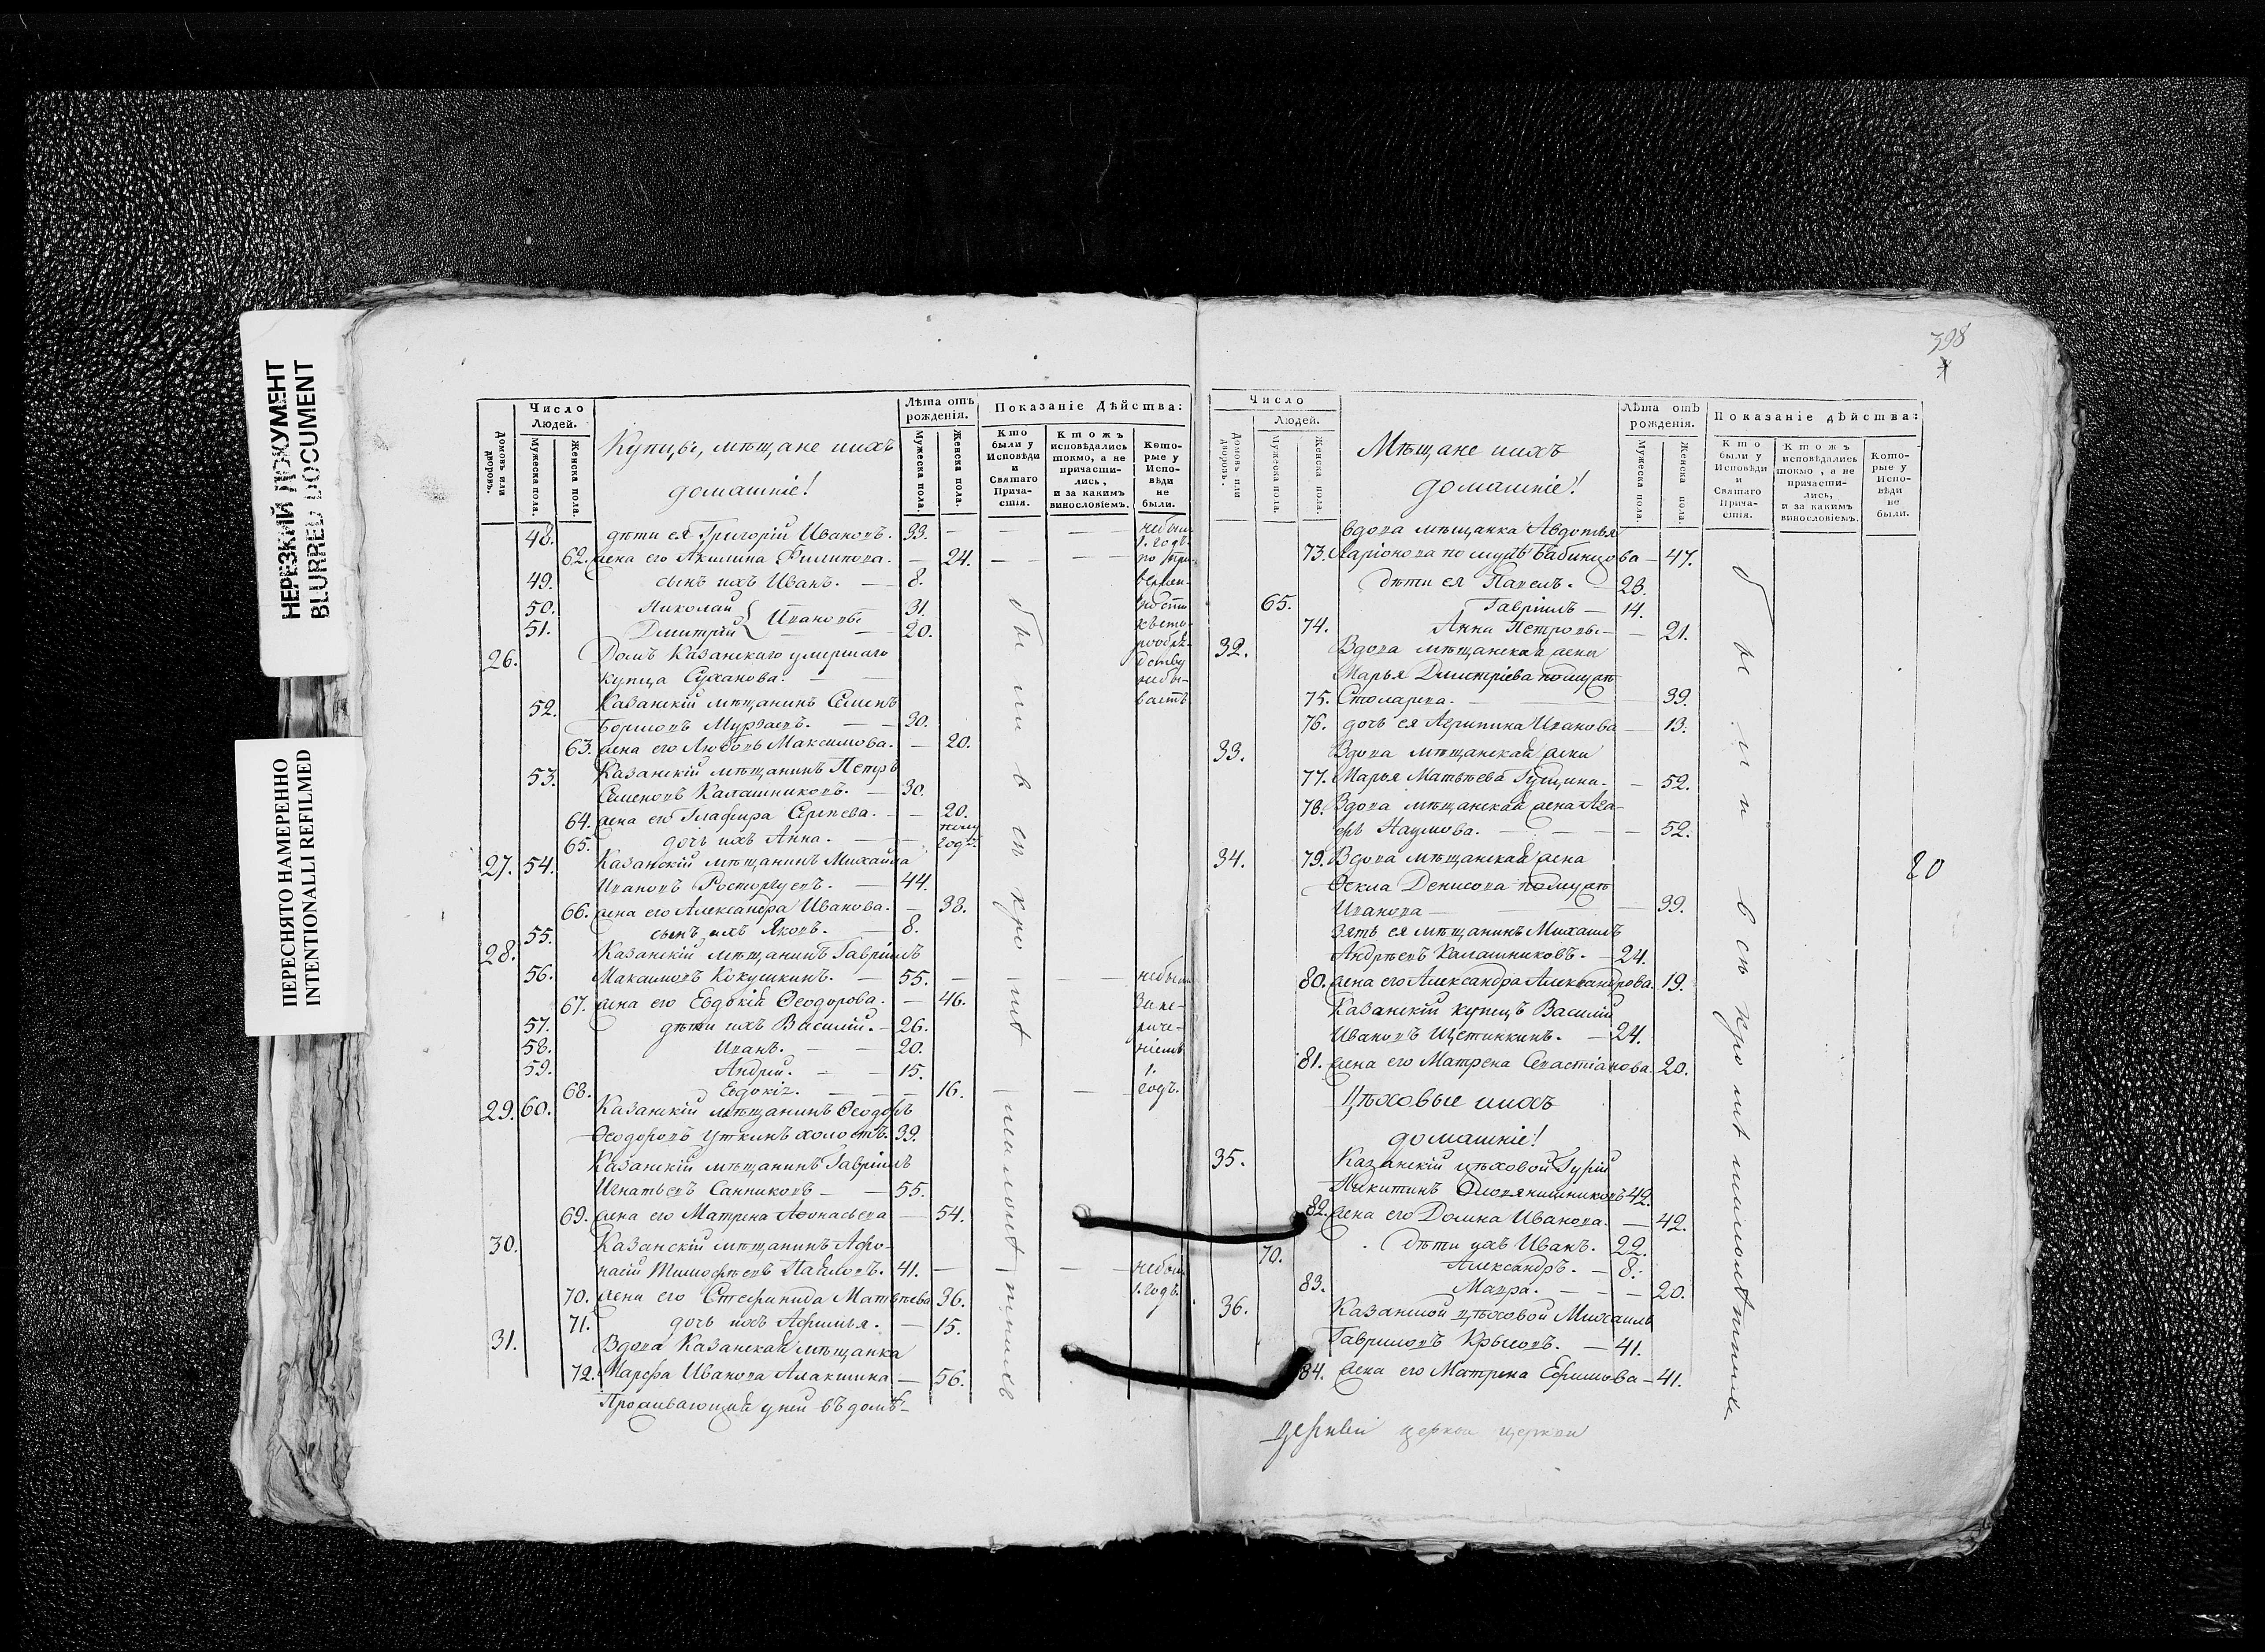 НЕРЕЗКИЙ ДОКУМЕНТ
BLURRED DOCUMENT
ПЕРЕСНЯТО НАМЕРЕННО
INTENTIONALLI REFILMED
Домовъ или дворовъ.
Число Людей.
Мужеска пола.
Женска пола.
Купцы, мѣщане ихъ
домашніе!
Лѣта отъ рожденія.
Мужеска пола.
Женска пола.
Показаніе Дѣйства:
Кто были у Исповѣди и Святаго Прича-стія.
Ктожъ исповѣдались токмо, а не причасти-лись, и за какимъ винословіемъ.
Кото-рые у Испо-вѣди не были.
48. дѣти ея Григорій Ивановъ. 33. — — — небыл
1. годъ
62. жена его Акилина Филипова. — 24. — — —
49. сынъ ихъ Иванъ. — 8.
50. Николай } Ивановы 31.
51. Дмитрій — — 20.
26. Домъ Казанскаго умершаго
купца Суханова. — —
52. Казанскій мѣщанинъ Семенъ
Борисовъ Мурзаевъ. — — 30.
63. жена его Любовь Максимова. — 20.
53. Казанскій мѣщанинъ Петръ
Семеновъ Калашниковъ. — 30.
64. жена его Глафира Сергѣева. — 20.
65. дочь ихъ Анна. — годъ.
27. 54. Казанскій мѣщанинъ Михайла
Ивановъ Росторгуевъ. — 44.
66. жена его Александра Иванова. — 38.
55. сынъ ихъ Яковъ. — 8.
28. Казанскій мѣщанинъ Гавріилъ
56. Максимовъ Кокушкинъ. — 55. — — — небыл
67. жена его Евдокія Ѳеодорова. — 46.
57. дѣти ихъ Василій. — 26.
58. Иванъ. — — 20.
59. Андрей. — — 15. 1.
68. Евдокія. — — — 16. — годъ.
29. 60. Казанскій мѣщанинъ Ѳеодоръ
Ѳеодоровъ Уткинъ холостъ. 39.
Казанскій мѣщанинъ Гавріилъ
Игнатьевъ Санниковъ — — 55.
69. жена его Матрена Аѳонасьева — 54.
30. Казанскій мѣщанинъ Аѳо-
насій Тимофѣевъ Павловъ. 41. — — — небыл
70. жена его Стефанида Матвѣева 36. 1. годъ.
71. дочь ихъ Афимья. — 15.
31. Вдова Казанская мѣщанка
72. Марфа Иванова Алакшина — 56.
Проживающій у ней въ домѣ —
были всѣ кромѣ малолетныхъ
398
Число
Людей.
Домовъ или дворовъ.
Мужеска пола.
Женска пола.
Мѣщане ихъ
домашніе!
Лѣта отъ рожденія.
Мужеска пола.
Женска пола.
Показаніе дѣйства:
Кто были у Исповѣди и Святаго Прича-стія.
Ктожъ исповѣдались токмо, а не причасти-лись, и за какимъ винословіемъ.
Кото-рые у Испо-вѣди не были.
вдова мѣщанка Авдотья
73. Ларіонова по мужѣ Бабинцова — 47.
дѣти ея Павелъ. — 23.
65. Гавріилъ — 14.
74. Анна Петровы — — 21.
32. Вдова мѣщанская жена
Марья Дмитріева по мужѣ
75. Столарева. — — 39.
76. дочь ея Агрипина Иванова — 13.
33. Вдова мѣщанская жена
77. Марья Матвѣева Гущина. — 52.
78. Вдова мѣщанская жена Ага-
фья Наумова. — — — — 52.
34. 79. Вдова мѣщанская жена
Ѳекла Денисова по мужѣ
Иванова — — — 39.
Зять ея мѣщанинъ Михаилъ
Андрѣевъ Калашниковъ. — 24.
80. жена его Александра Александрова. 19.
Казанскій купецъ Василій
Ивановъ Щетинкинъ. — 24.
81. жена его Матрена Севастіанова. 20.
Цѣховые ихъ
домашніе!
35. Казанскій цѣховой Гурій
Никитинъ 42.
82. жена его Домна Иванова. — 42.
70. дѣти ихъ Иванъ. 22.
Александръ. — 8.
83. Мавра. — — — 20.
36. Казанской цѣховой Михаилъ
Гавриловъ Крысовъ. — 41.
84. жена его Матрена Ефимова — 41.
были всѣ кромѣ малолетныхъ
20
церкви церкви